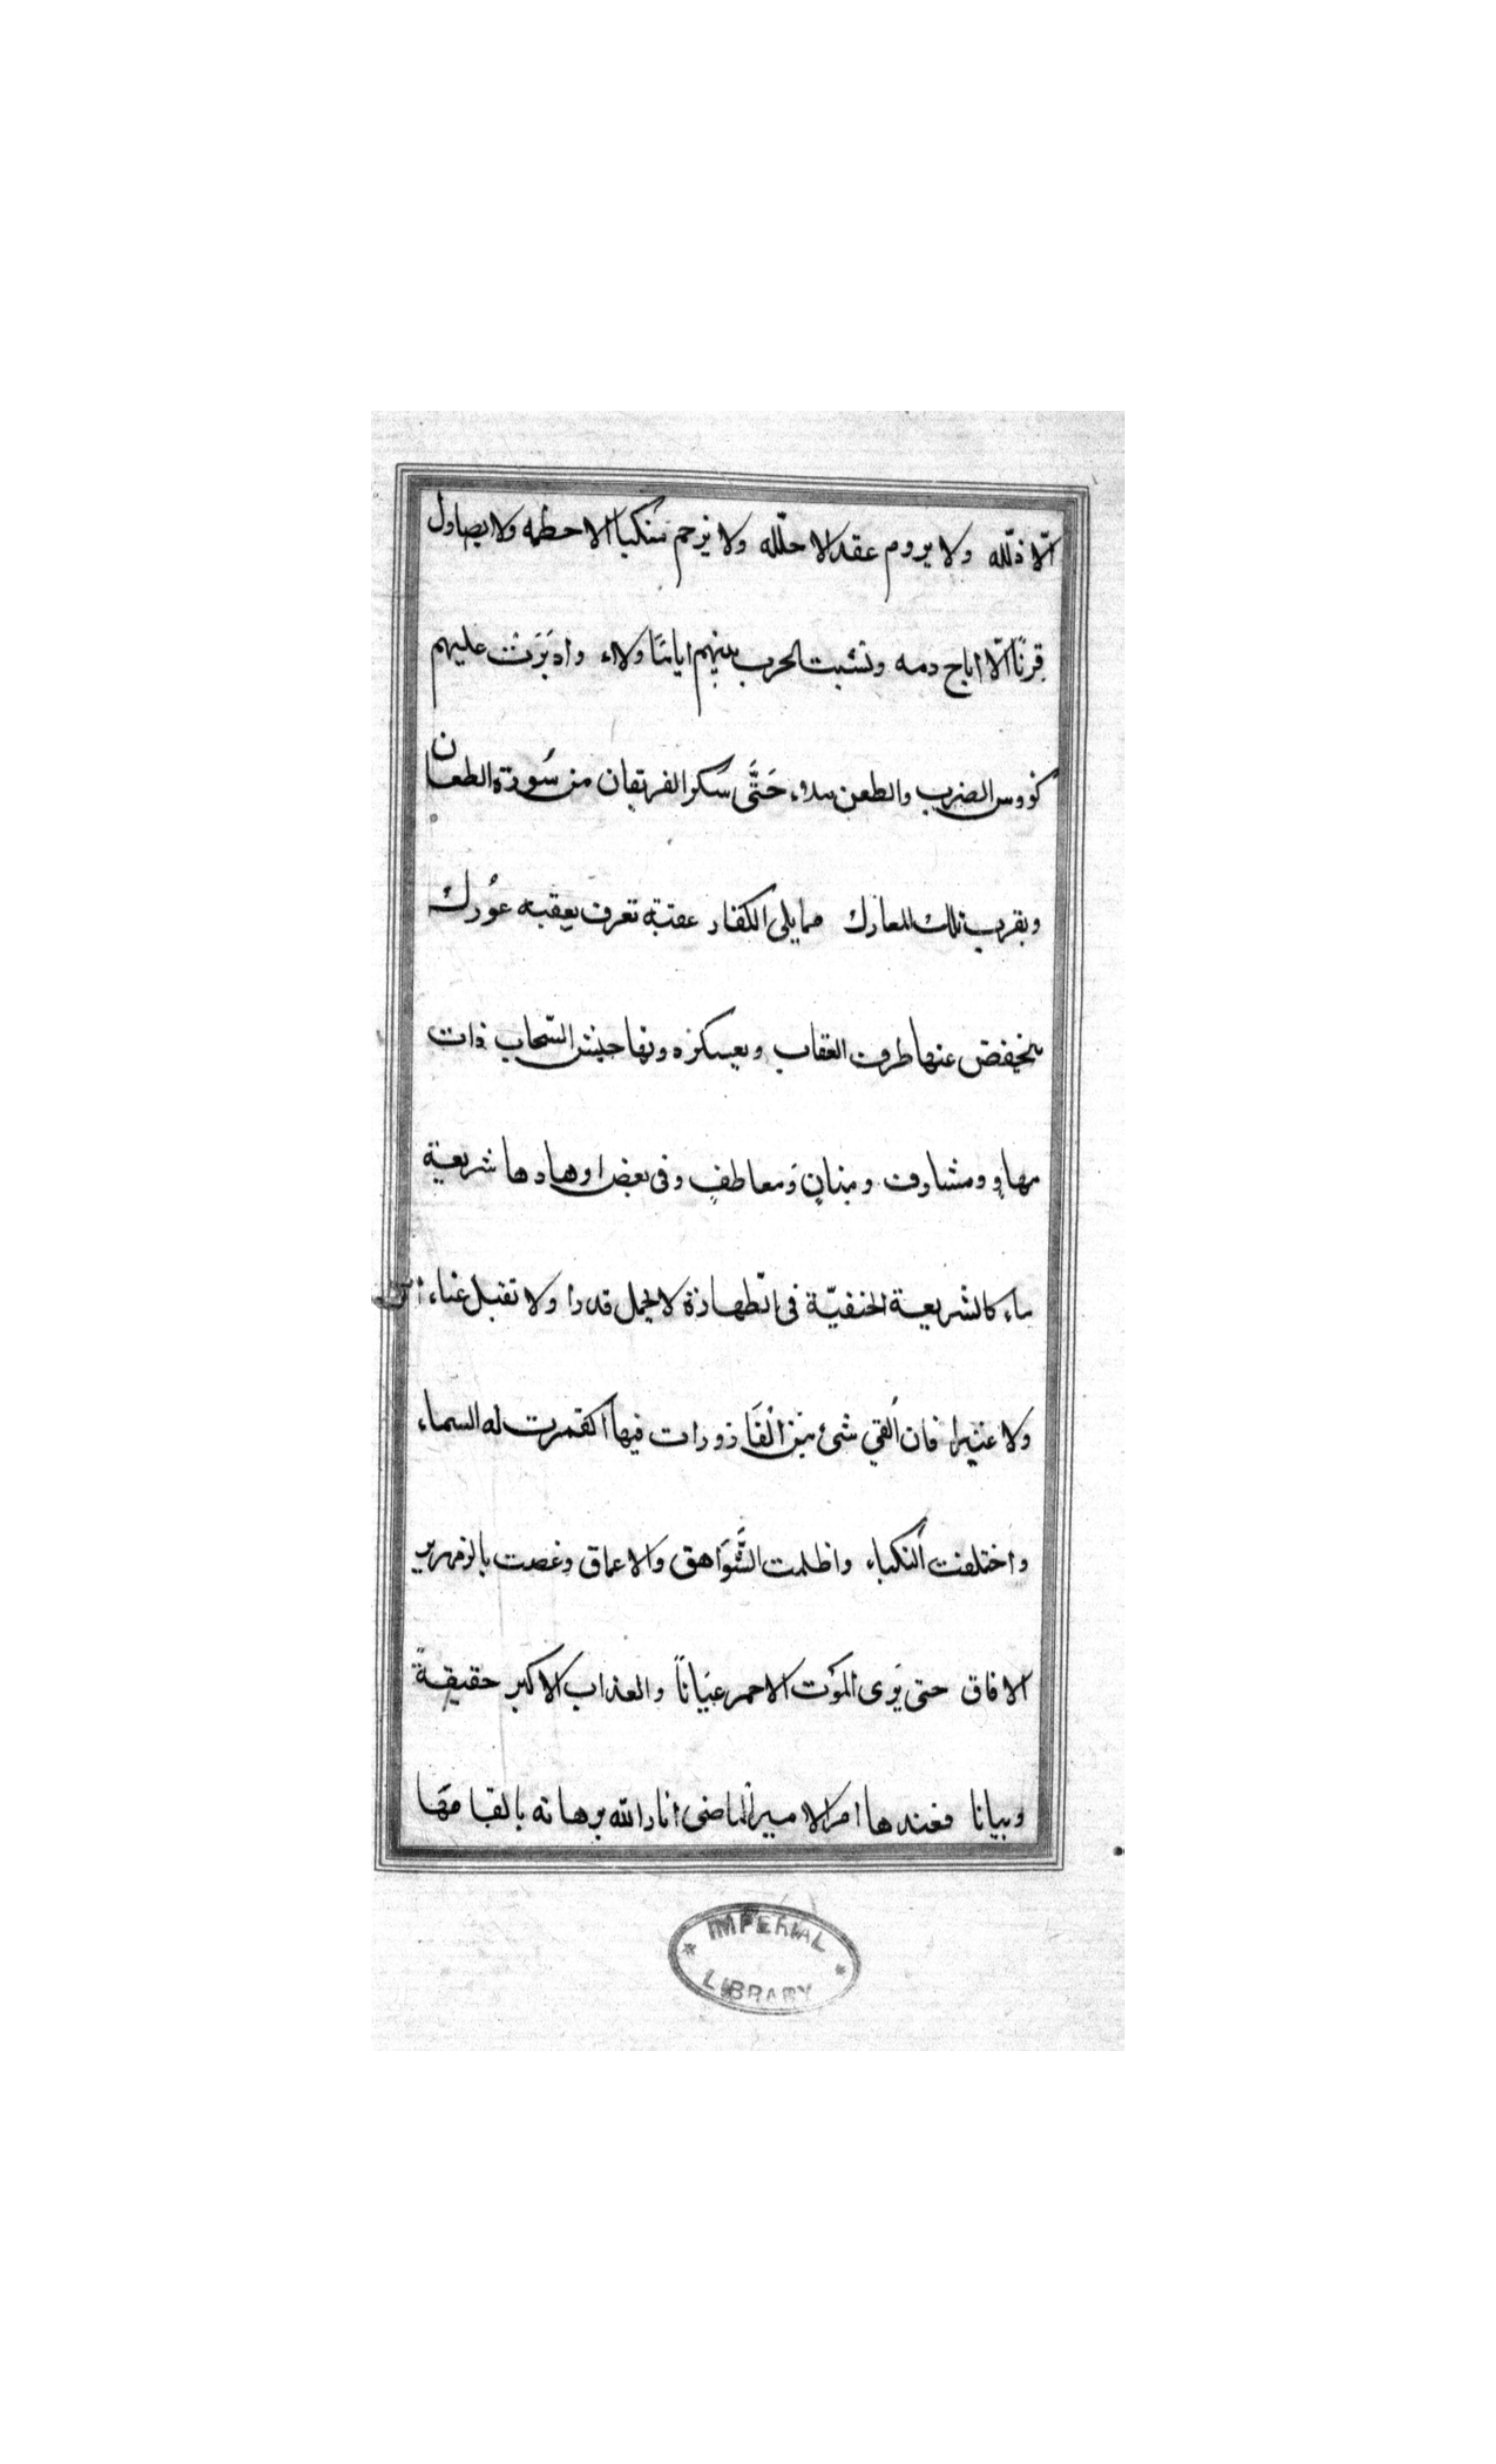 الّا ذلّله ولا يروم عقدا الا حلّله ولا يزحم منكبا الا حطمه ولا يصاول
قرنًا الّا اباح دمه ونشبت الحرب بينهم ايامًا ولاء وادبرَت عليهم
كؤوس الضرب والطعن ملاء حَتَّى سَكر الفريقان من سَورة الطعان
وبقرب تلك المعارك مما يلي الكفار عقبة تعرف بعقبه غُورك
ينخفض عنها طرف العقاب و دونها جيش السّحاب ذات
مهاوٍ ومشارف ومثانٍ وَمعاطفٍ وفى بعض اوهادها شريعة
ماء كالشريعة الحنفيّة فى الطّهارة لا تحمل قذرا ولا تقبل غثاء
ولا غثيرا فان اُلقي شئ من القَاذورات فيها اكفهرت له السماء
واختلفت النكباء واظلمت الشَّوَاهق والاعماق وغصت بالزمهرير
الافاق حتى يَرى الموَت الاحمر عيَاناً والعذاب الاكبر حقيقةً
وبيانا فعندها امر الامير الماضى انار الله برهانه بالقا مَها
IMPERIAL
LIBRARY